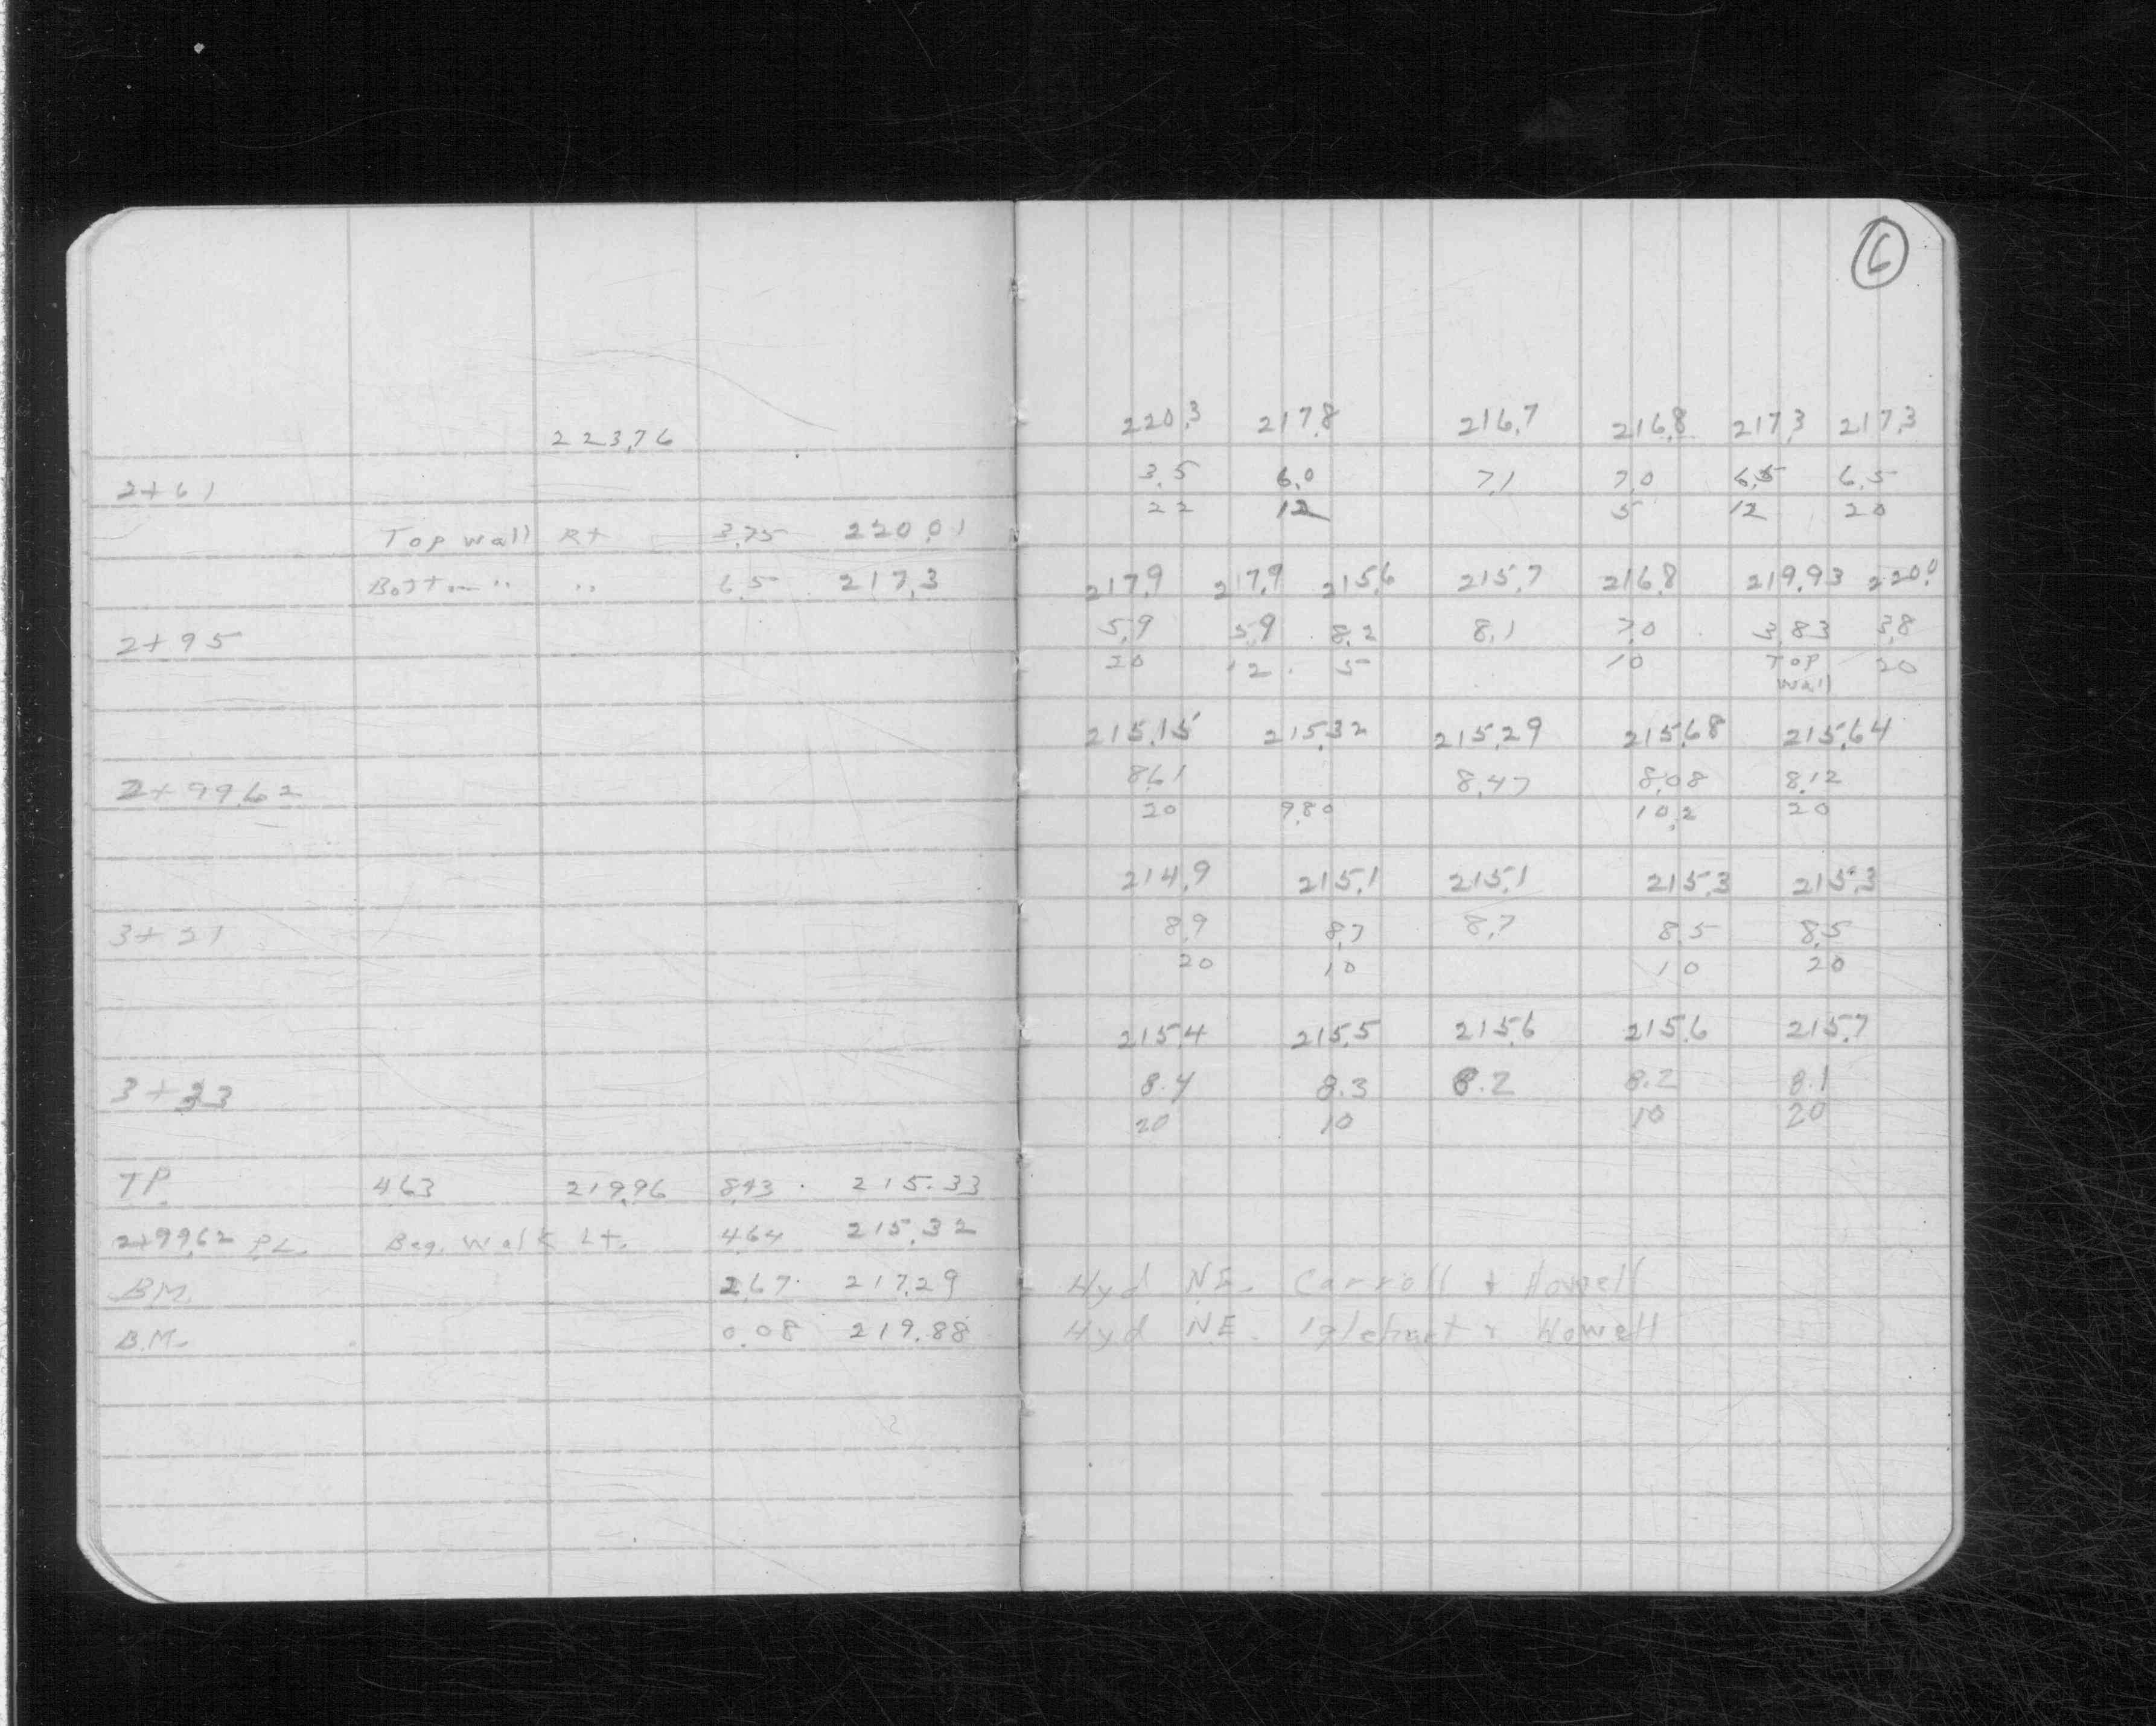 6
223.76
2+61
Top wall Rt 3.75 220.01
Bottom " " 6.5 217.3
2+95
2+99.62
3+21
3+33
TP. 4.63 219.96 8.43 215.33
2+99.62 PL. Beg. Walk Lt. 4.64 215.32
B.M. 2.67 217.29
B.M. 0.08 219.88
220.3 217.8 216.7 216.8 217.3 217.3
3.5 6.0 7.1 7.0 6.5 6.5
22 12 5 12 20
217.9 217.9 215.6 215.7 216.8 219.93 220.0
5.9 5.9 8.2 8.1 7.0 3.83 3.8
20 12 5 10 Top 20
Wall
215.15 215.32 215.29 215.68 215.64
8.61 8.47 8.08 8.12
20 9.80 10.2 20
214.9 215.1 215.1 215.3 215.3
8.9 8.7 8.7 8.5 8.5
20 10 10 20
215.4 215.5 215.6 215.6 215.7
8.4 8.3 8.2 8.2 8.1
20 10 10 20
Hyd NE. Carroll + Howell
Hyd NE. Iglehart + Howell